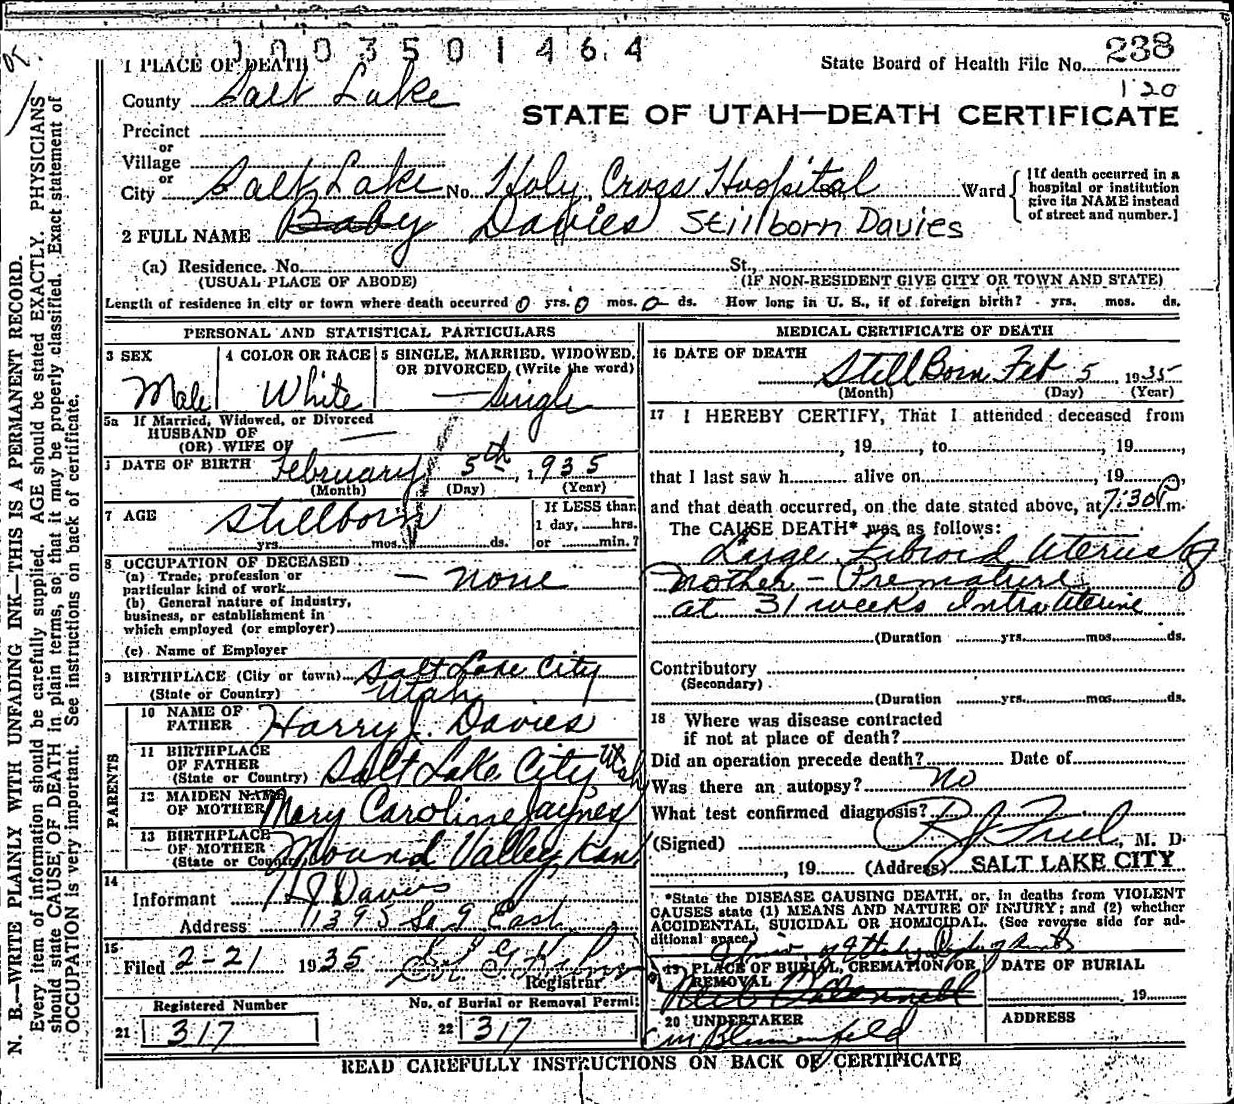 1003501464
1 PLACE OF DEATH
State Board of Health File No. 238
120
County Salt Lake
STATE OF UTAH—DEATH CERTIFICATE
Precinct
or
Village
or
City Salt Lake No. Holy Cross Hospital St. Ward
[If death occurred in a
hospital or institution
give its NAME instead
of street and number.]
2 FULL NAME Baby Davies Stillborn Davies
(a) Residence. No. St.,
(USUAL PLACE OF ABODE) (IF NON-RESIDENT GIVE CITY OR TOWN AND STATE)
Length of residence in city or town where death occurred 0 yrs. 0 mos. 0 ds. How long in U. S., if of foreign birth? yrs. mos. ds.
PERSONAL AND STATISTICAL PARTICULARS
3 SEX
Male
4 COLOR OR RACE
White
5 SINGLE, MARRIED, WIDOWED,
OR DIVORCED, (Write the word)
— Single
5a If Married, Widowed, or Divorced
HUSBAND OF
(OR) WIFE OF —
DATE OF BIRTH February 5th, 1935
(Month) (Day) (Year)
7 AGE Stillborn
yrs. mos. ds.
If LESS than
1 day, hrs.
or min.?
8 OCCUPATION OF DECEASED
(a) Trade, profession or
particular kind of work — none
(b) General nature of industry,
business, or establishment in
which employed (or employer)
(c) Name of Employer
9 BIRTHPLACE (City or town) Salt Lake City
(State or Country) Utah
PARENTS
10 NAME OF
FATHER Harry J. Davies
11 BIRTHPLACE
OF FATHER
(State or Country) Salt Lake City Utah
12 MAIDEN NAME
OF MOTHER Mary Caroline Jaynes
13 BIRTHPLACE
OF MOTHER
(State or Country) Mound Valley, Kan
14
Informant H J Davies
Address 1395 So 9 East
15
Filed 2-21 1935
Registrar
Registered Number
21 317
No. of Burial or Removal Permit
22 317
MEDICAL CERTIFICATE OF DEATH
16 DATE OF DEATH
Still Born Feb 5 1935
(Month) (Day) (Year)
17 I HEREBY CERTIFY, That I attended deceased from
, 19, to, 19,
that I last saw h alive on, 19,
and that death occurred, on the date stated above, at 7:30 P m.
The CAUSE DEATH* was as follows:
Large Fibroid Uterus of
Mother — Premature
at 31 weeks Intra Uterine
(Duration yrs. mos. ds.
Contributory
(Secondary)
(Duration yrs. mos. ds.
18 Where was disease contracted
if not at place of death?
Did an operation precede death? Date of
Was there an autopsy? no
What test confirmed diagnosis?
(Signed), M. D.
, 19 (Address) SALT LAKE CITY
*State the DISEASE CAUSING DEATH, or, in deaths from VIOLENT
CAUSES state (1) MEANS AND NATURE OF INJURY; and (2) whether
ACCIDENTAL, SUICIDAL OR HOMICIDAL. (See reverse side for ad-
ditional space.)
19 PLACE OF BURIAL, CREMATION OR
REMOVAL
DATE OF BURIAL
, 19
20 UNDERTAKER
ADDRESS
READ CAREFULLY INSTRUCTIONS ON BACK OF CERTIFICATE
N. B.—WRITE PLAINLY WITH UNFADING INK—THIS IS A PERMANENT RECORD.
Every item of information should be carefully supplied. AGE should be stated EXACTLY. PHYSICIANS
should state CAUSE OF DEATH in plain terms, so that it may be properly classified. Exact statement of
OCCUPATION is very important. See instructions on back of certificate.